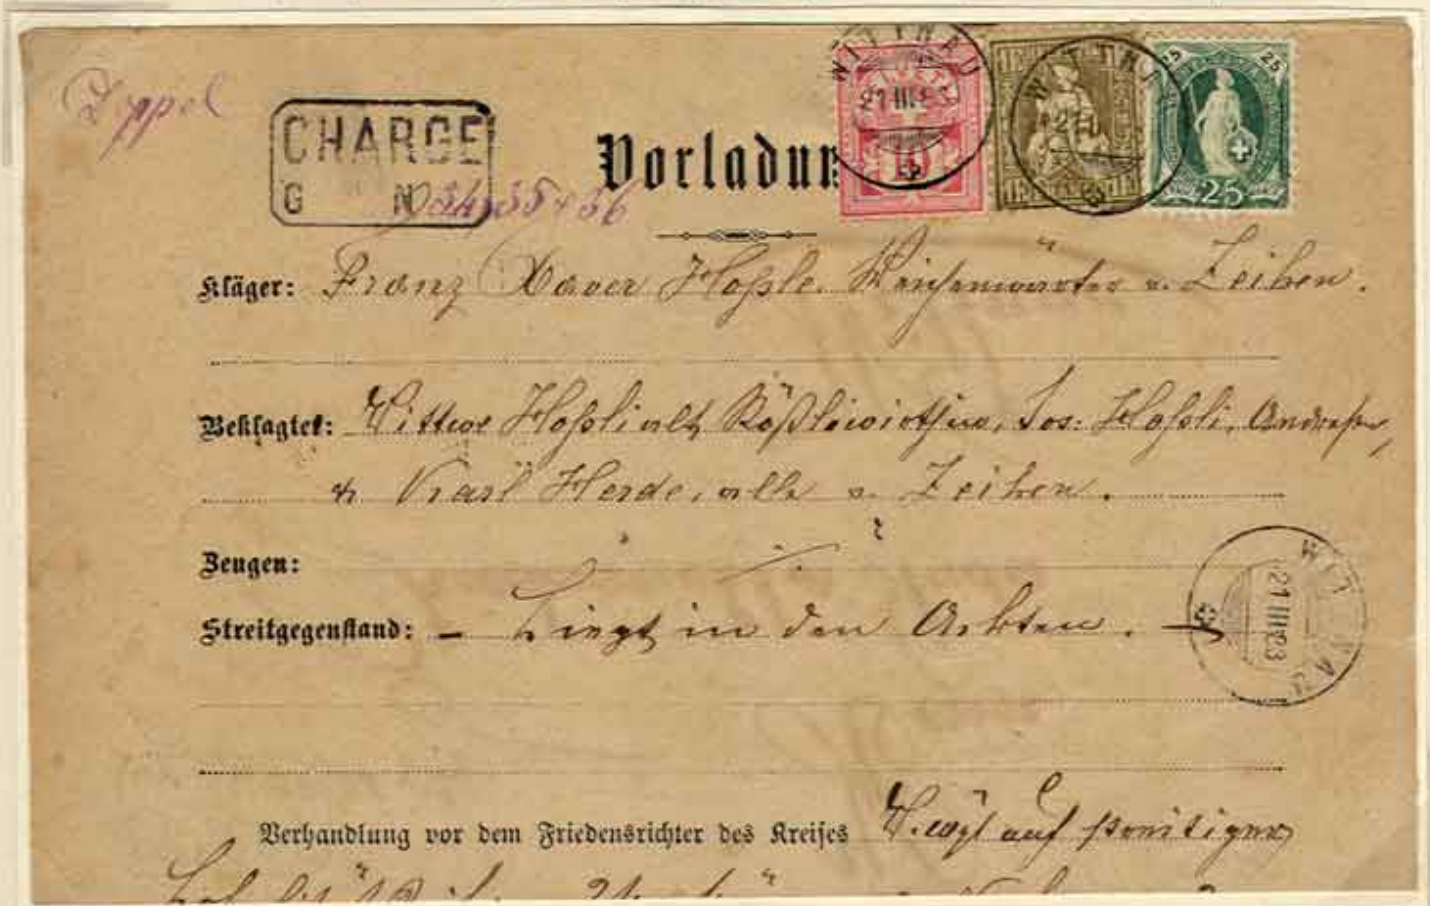 Doppel
CHARGE
G N
34, 35 & 36
Vorladun
WITTNAU
21 III 83
10
WITTNA
25
25
Kläger: Franz Xaver Hoßle. Weichenwärter v. Zeihen.
Beklagter: Wittwe Hoßli alt Rößliwirthin, Jos: Hoßli, Andresen,
& Karl Herde, alle v. Zeihen.
Zeugen:
Streitgegenstand: – Liegt in den Ackten. –
WITTNAU
21 III 83
Verhandlung vor dem Friedensrichter des Kreises auf